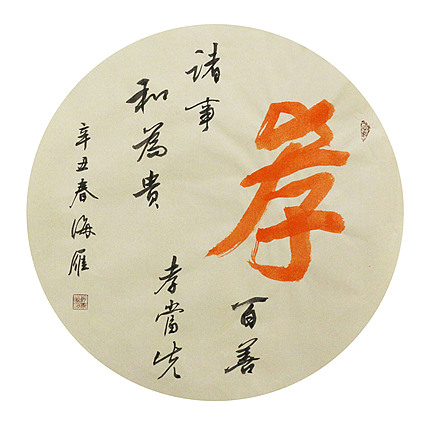 孝
百善
孝當先
諸事
和為貴
辛丑春海雁